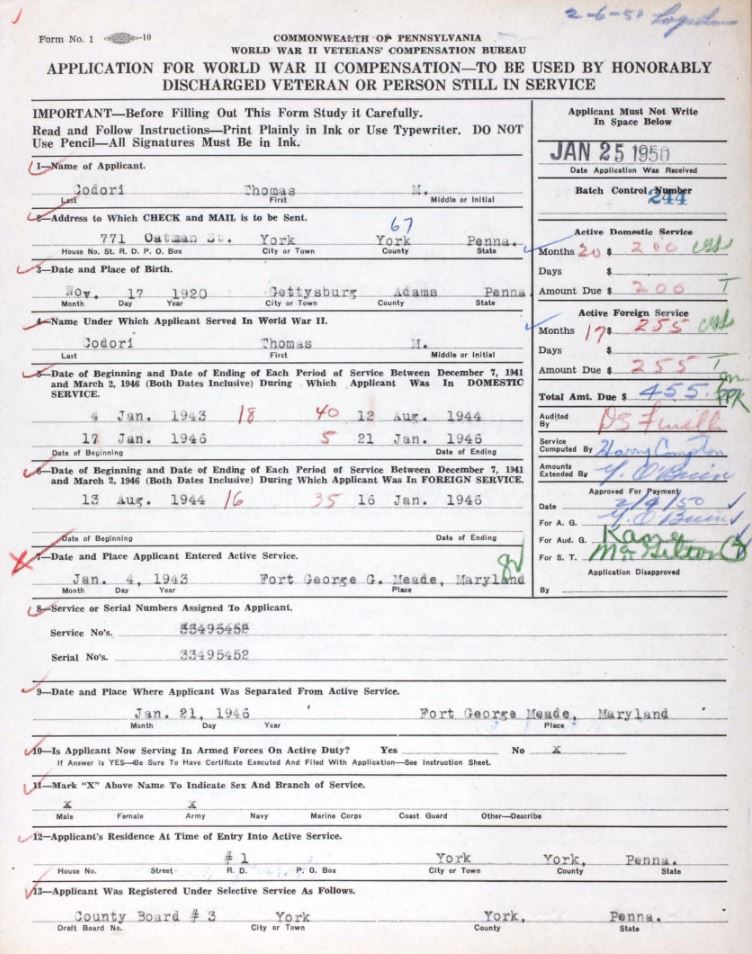 2-6-50
Form No. 1 -10
COMMONWEALTH OF PENNSYLVANIA
WORLD WAR II VETERANS' COMPENSATION BUREAU
APPLICATION FOR WORLD WAR II COMPENSATION—TO BE USED BY HONORABLY
DISCHARGED VETERAN OR PERSON STILL IN SERVICE
IMPORTANT—Before Filling Out This Form Study it Carefully.
Read and Follow Instructions—Print Plainly in Ink or Use Typewriter. DO NOT
Use Pencil—All Signatures Must Be in Ink.
Applicant Must Not Write
In Space Below
JAN 25 1950
Date Application Was Received
Batch Control Number
244
1—Name of Applicant.
Codori Thomas M.
Last First Middle or Initial
2—Address to Which CHECK and MAIL is to be Sent.
67
771 Oatman St. York York Penna.
House No. St. R. D. P. O. Box City or Town County State
3—Date and Place of Birth.
Nov. 17 1920 Gettysburg Adams Penna
Month Day Year City or Town County State
4—Name Under Which Applicant Served In World War II.
Codori Thomas M.
Last First Middle or Initial
5—Date of Beginning and Date of Ending of Each Period of Service Between December 7, 1941
and March 2, 1946 (Both Dates Inclusive) During Which Applicant Was In DOMESTIC
SERVICE.
4 Jan. 1943 18 40 12 Aug. 1944
17 Jan. 1946 5 21 Jan. 1946
Date of Beginning Date of Ending
6—Date of Beginning and Date of Ending of Each Period of Service Between December 7, 1941
and March 2, 1946 (Both Dates Inclusive) During Which Applicant Was in FOREIGN SERVICE.
13 Aug. 1944 16 35 16 Jan. 1946
Date of Beginning Date of Ending
7—Date and Place Applicant Entered Active Service.
Jan. 4, 1943 Fort George G. Meade, Maryland
Month Day Year Place
Active Domestic Service
Months 20 $ 200
Days $
Amount Due $ 200 T
Active Foreign Service
Months 17 $ 255
Days $
Amount Due $ 255 T
Total Amt. Due $ 455.
PPK
Audited
By
Service
Computed By Harry Compton
Amounts
Extended By Y. O'Brien
Approved For Payment
Date 2/9/50
For A. G. Y. O'Brien
For Aud. G. Kane
For S. T.
Application Disapproved
By
8—Service or Serial Numbers Assigned To Applicant.
Service No's. 33495452
Serial No's. 33495452
9—Date and Place Where Applicant Was Separated From Active Service.
Jan. 21, 1946 Fort George Meade, Maryland
Month Day Year Place
10—Is Applicant Now Serving In Armed Forces On Active Duty? Yes No X
If Answer is YES—Be Sure To Have Certificate Executed And Filed With Application—See Instruction Sheet.
11—Mark "X" Above Name To Indicate Sex and Branch of Service.
X X
Male Female Army Navy Marine Corps Coast Guard Other—Describe
12—Applicant's Residence At Time of Entry Into Active Service.
# 1 York York, Penna.
House No. Street R. D. P. O. Box City or Town County State
13—Applicant Was Registered Under Selective Service As Follows.
County Board # 3 York York, Penna.
Draft Board No. City or Town County State